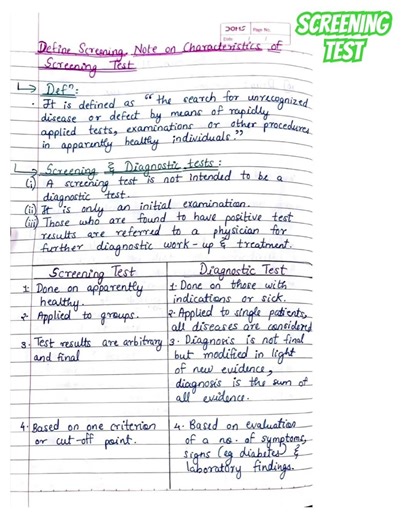 SCREENING
TEST
Page No.
Date:
Define Screening, Note on Characteristics of
Screening Test
↳ Defⁿ:
· It is defined as "the search for unrecognized
disease or defect by means of rapidly
applied tests, examinations or other procedures
in apparently healthy individuals."
↳ Screening & Diagnostic tests:
(i) A screening test is not intended to be a
diagnostic test.
(ii) It is only an initial examination.
(iii) Those who are found to have positive test
results are referred to a physician for
further diagnostic work-up & treatment.
Screening Test
1. Done on apparently
healthy.
2. Applied to groups.
3. Test results are arbitrary
and final
4. Based on one criterion
or cut-off point.
Diagnostic Test
1. Done on those with
indications or sick.
2. Applied to single patients,
all diseases are considered
3. Diagnosis is not final
but modified in light
of new evidence,
diagnosis is the sum of
all evidence.
4. Based on evaluation
of a no. of symptoms,
signs (eg diabetes) &
laboratory findings.